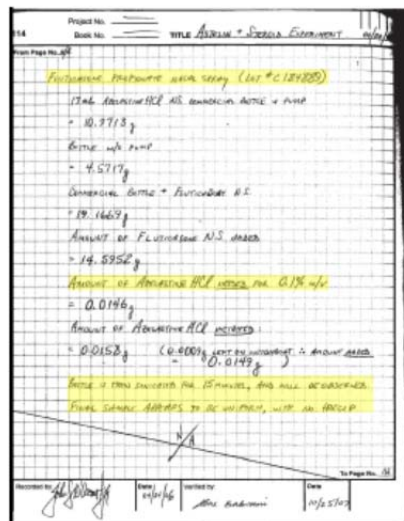 114
Project No.
Book No.
TITLE Astelin + Steroid Experiment
From Page No.
Fluticasone Propionate Nasal Spray (Lot #C184889)
17mL Azelastine HCl N.S. Commercial Bottle + Pump
= 10.7713g
Bottle w/o Pump
= 4.5717g
Commercial Bottle + Fluticasone N.S.
= 19.1669g
Amount of Fluticasone N.S. Added
= 14.5952g
Amount of Azelastine HCl needed for 0.1% w/v
= 0.0146g
Amount of Azelastine HCl weighed:
= 0.0158g (0.0009g left on ∴ Amount added
= 0.0149g)
Bottle is then sonicated for 15 minutes, and will be observed.
Final sample appears to be uniform, with no
N/A
To Page No.
Recorded by
Date
Verified by
Date
10/25/07